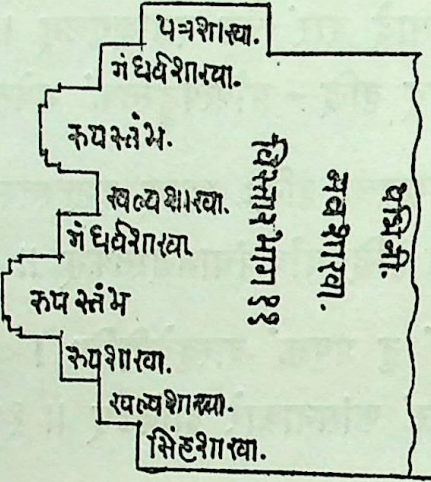 पत्रशाखा.
गंधर्वशाखा.
रुपस्तंभ.
खल्वशाखा.
गंधर्वशाखा
रुपस्तंभ
रुपशाखा.
खल्वशाखा.
सिंहशाखा.
विस्तार भाग ११
नवशाखा.
पद्मिनी.